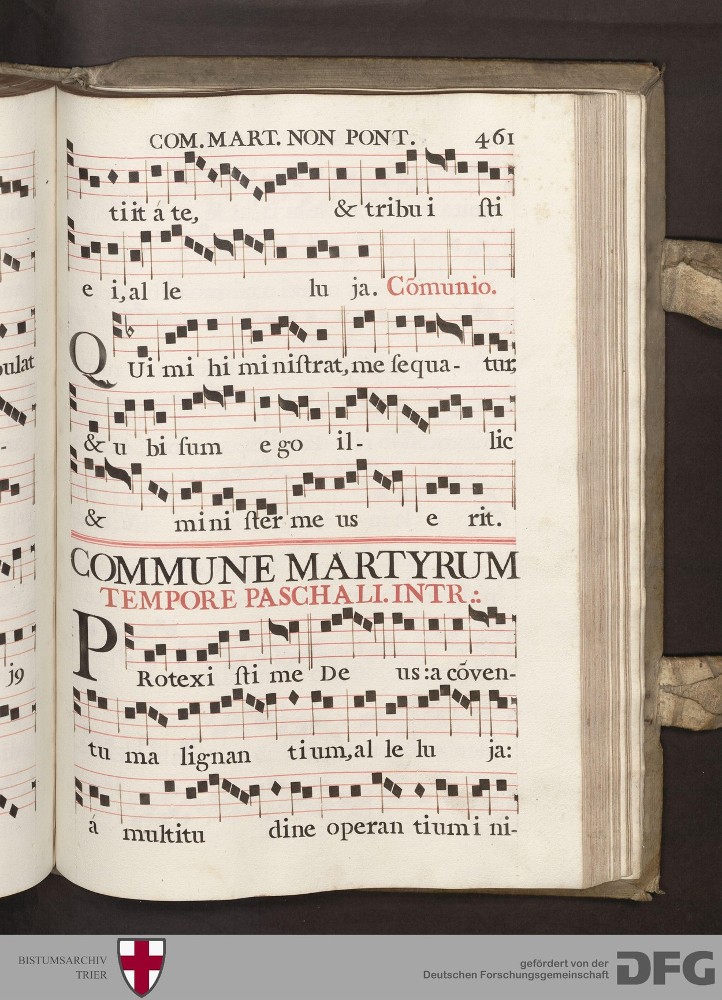 COM. MART. NON PONT. 461
ti it á te, & tribu i ſti
e i, al le lu ja. Cõmunio.
QUi mi hi mi niſtrat, me ſequa- tur,
& u bi ſum e go il- lic
& mi ni ſter me us e rit.
COMMUNE MARTYRUM
TEMPORE PASCHALI. INTR.:.
PRotexi ſti me De us: a cõven-
tu ma lignan tium, al le lu ja:
á multitu dine operan tium i ni-
pulat
-
j9
BISTUMSARCHIV
TRIER
gefördert von der
Deutschen Forschungsgemeinschaft
DFG